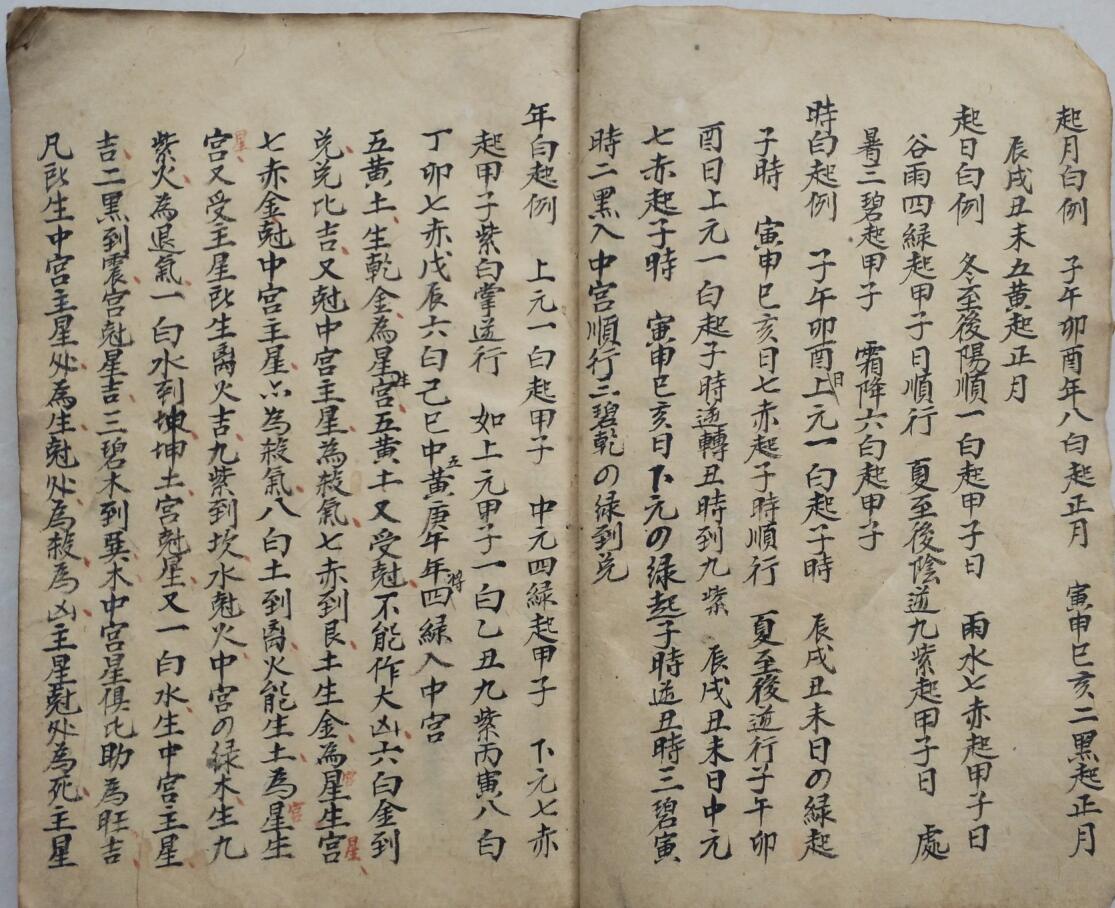 起月白例　子午卯酉年八白起正月　寅申巳亥二黑起正月
辰戌丑未五黃起正月
起日白例　冬至後陽順一白起甲子日　雨水七赤起甲子日
谷雨四緑起甲子日順行　夏至後陰逆九紫起甲子日　處
暑三碧起甲子　霜降六白起甲子
時白起例　子午卯酉日上元一白起子時　辰戌丑未日の緑起
子時　寅申巳亥日七赤起子時順行　夏至後逆行子午卯
酉日上元一白起子時逆轉丑時到九紫　辰戌丑未日中元
七赤起子時　寅申巳亥日下元の緑起子時逆丑時三碧寅
時二黑入中宮順行三碧乾の緑到兑
年白起例　上元一白起甲子　中元四緑起甲子　下元七赤
起甲子紫白掌逆行　如上元甲子一白乙丑九紫丙寅八白
丁卯七赤戊辰六白己巳中五黃庚午年將四緑入中宮
五黃土生乾金為星宮五黃土又受尅不能作大凶六白金到
兑兑比吉又尅中宮主星為殺氣七赤到艮土生金為星宮生宮星
七赤金尅中宮主星亦為殺氣八白土到离火能生土為宮星生
宮星又受主星所生离火吉九紫到坎水尅火中宮の緑木生九
紫火為退氣一白水到坤坤土宮尅星又一白水生中宮主星
吉二黑到震宮尅星吉三碧木到巽木中宮星俱比助為旺吉
凡所生中宮主星处為生尅处為殺為凶主星尅处為死主星